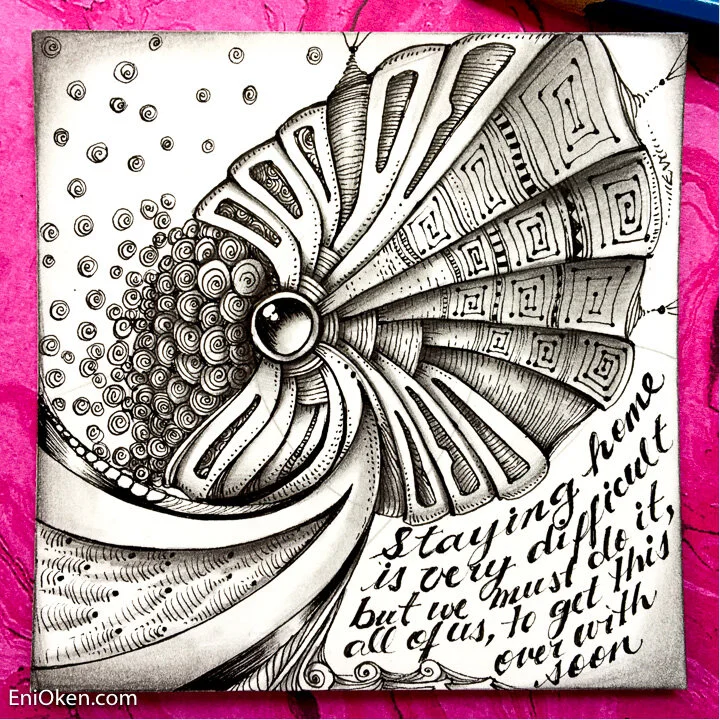 Staying home
is very difficult
but we must do it,
all of us, to get this
over with
soon
EniOken.com